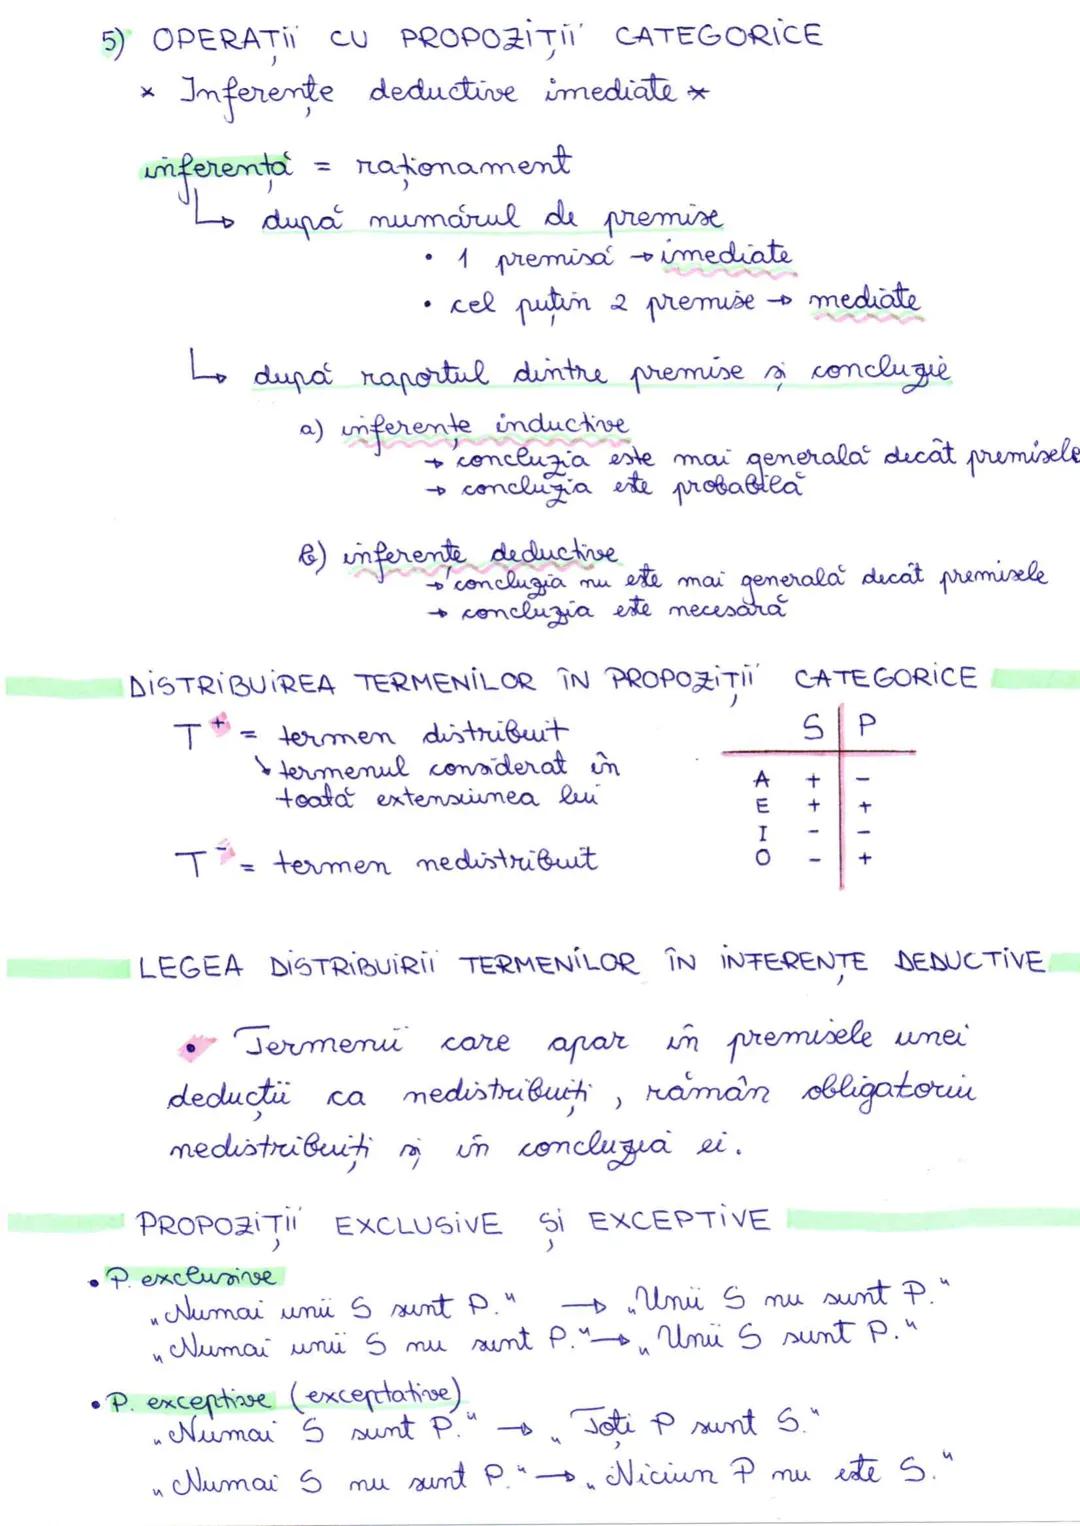 5) OPERAȚII CU PROPOZIȚII CATEGORICE
* Inferențe deductive imediate *
inferență = raționament
↳ după numărul de premise
• 1 premisă → imediate
• cel puțin 2 premise → mediate
↳ după raportul dintre premise și concluzie
a) inferențe inductive
→ concluzia este mai generală decât premisele
→ concluzia este probabilă
b) inferențe deductive
→ concluzia nu este mai generală decât premisele
→ concluzia este necesară
DISTRIBUIREA TERMENILOR ÎN PROPOZIȚII CATEGORICE
T⁺ = termen distribuit
↘ termenul considerat în
toată extensiunea lui
T⁻ = termen nedistribuit
S P
A + -
E + +
I - -
O - +
LEGEA DISTRIBUIRII TERMENILOR ÎN INFERENȚE DEDUCTIVE
• Termenii care apar în premisele unei
deducții ca nedistribuiți, rămân obligatoriu
nedistribuiți și în concluzia ei.
PROPOZIȚII EXCLUSIVE ȘI EXCEPTIVE
• P. exclusive
„Numai unii S sunt P." → „Unii S nu sunt P."
„Numai unii S nu sunt P." → „Unii S sunt P."
• P. exceptive (exceptative)
„Numai S sunt P." → „Toți P sunt S."
„Numai S nu sunt P." → „Niciun P nu este S."